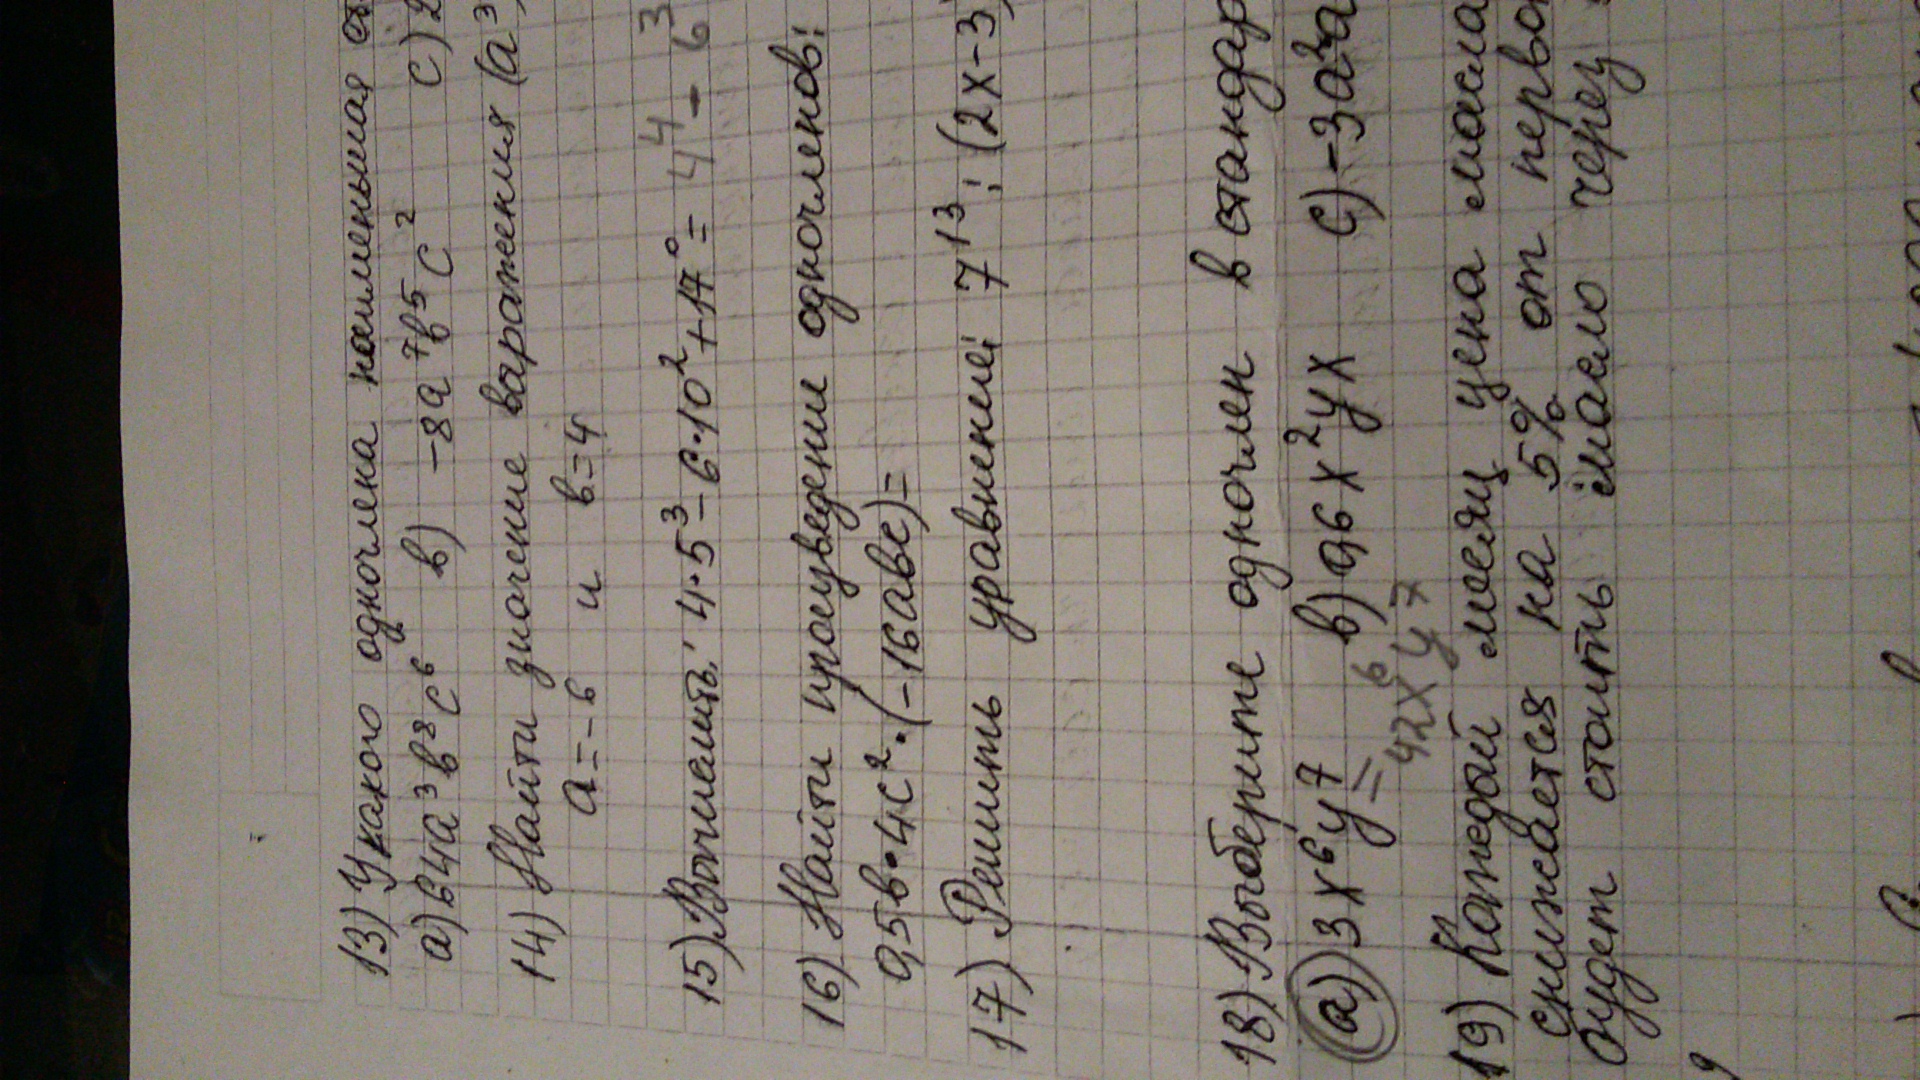 13) У какого одночлена наименьшая ст
а) 64а³в⁸с⁶ в) -8а⁷в⁵с² с) 2
14) Найти значение выражения (а³
а=-6 и в=4
15) Вычислить: 4·5³-6·10²+17⁰= 4⁴-6³
16) Найти произведении одночленов:
0,5в·4с²·(-16авс)=
17) Решить уравнение: 7¹³:(2х-3)
18) Выберите одночлен в стандар
а) 3х⁶у⁷= в) 96х²ух с) -3а²а
42х⁶у⁷
19) Каждый месяц цена масла
снижается на 5% от перво
будет стоить масло через